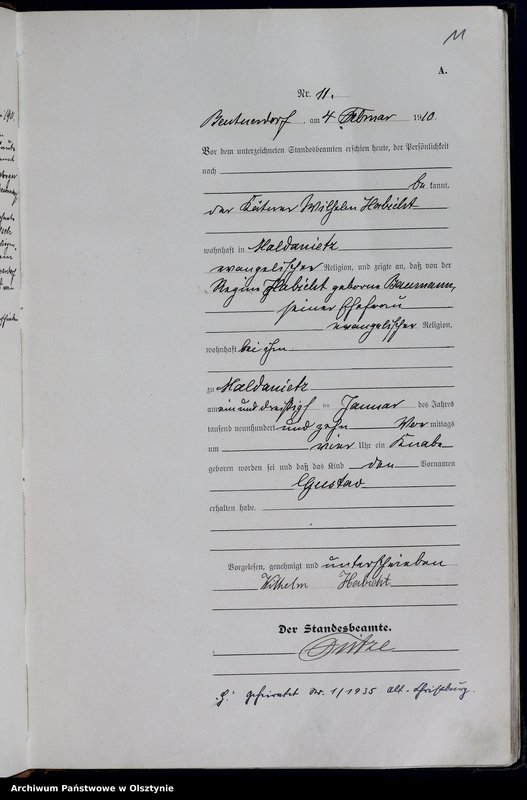 11
A.
Nr. 11.
Beutnerdorf, am 4 Februar 1910.
Vor dem unterzeichneten Standesbeamten erschien heute, der Persönlichkeit
nach
be kannt,
der Kätner Wilhelm Habicht
wohnhaft in Maldanietz
evangelischer Religion, und zeigte an, daß von der
Regine Habicht geborne Baumann,
seiner Ehefrau
evangelischer Religion,
wohnhaft bei ihm
zu Maldanietz
am einunddreißigsten Januar des Jahres
tausend neunhundert und zehn Vor mittags
um vier Uhr ein Knabe
geboren worden sei und daß das Kind den Vornamen
Gustav
erhalten habe.
Vorgelesen, genehmigt und unterschrieben
Wilhelm Habicht
Der Standesbeamte.
G: geheiratet Nr. 1/1935 Alt-Christburg.
Archiwum Państwowe w Olsztynie